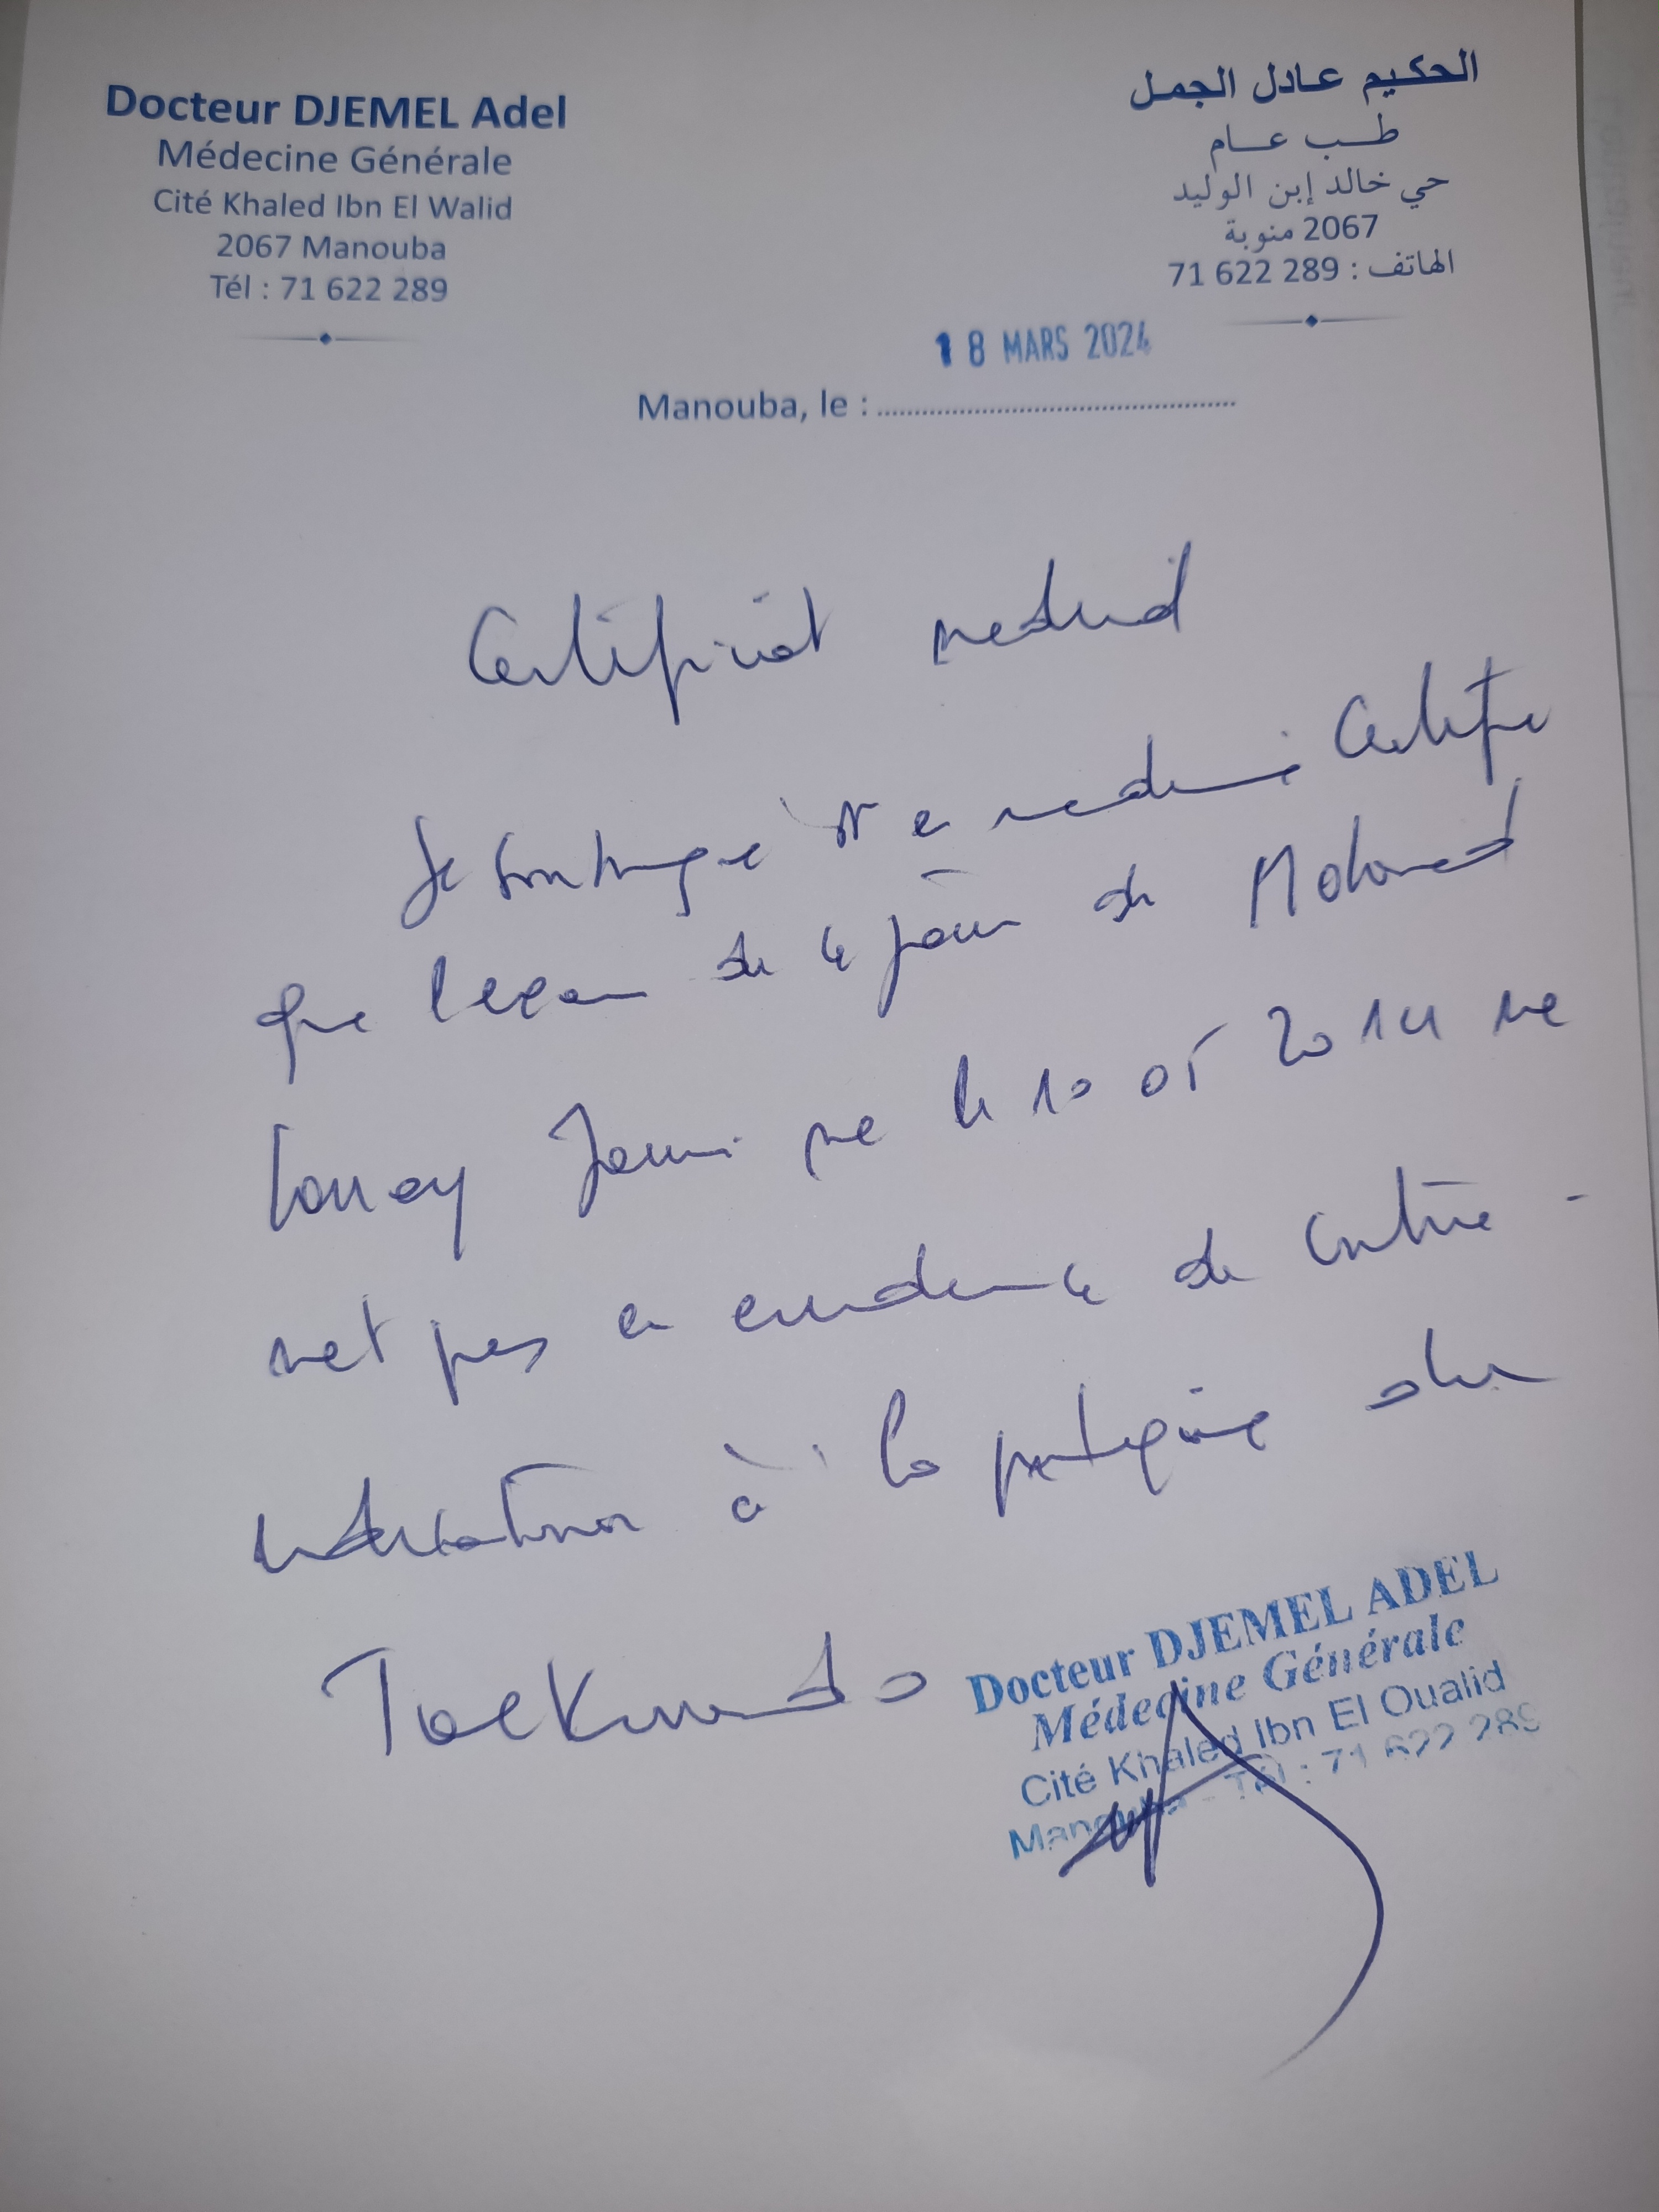 Docteur DJEMEL Adel
Médecine Générale
Cité Khaled Ibn El Walid
2067 Manouba
Tél : 71 622 289
الحكيم عادل الجمل
طب عام
حي خالد إبن الوليد
2067 منوبة
الهاتف : 71 622 289
18 MARS 2024
Manouba, le :
Certificat medical
Je soussigné Dr en medecine Certifie
que l'examen de ce jour de Mohamed
Louay né le 10 05 2014 ne
met pas en evidence de contre-
indication à la pratique du
Taekwondo
Docteur DJEMEL ADEL
Médecine Générale
Cité Khaled Ibn El Oualid
Manouba - Tél : 71 622 289